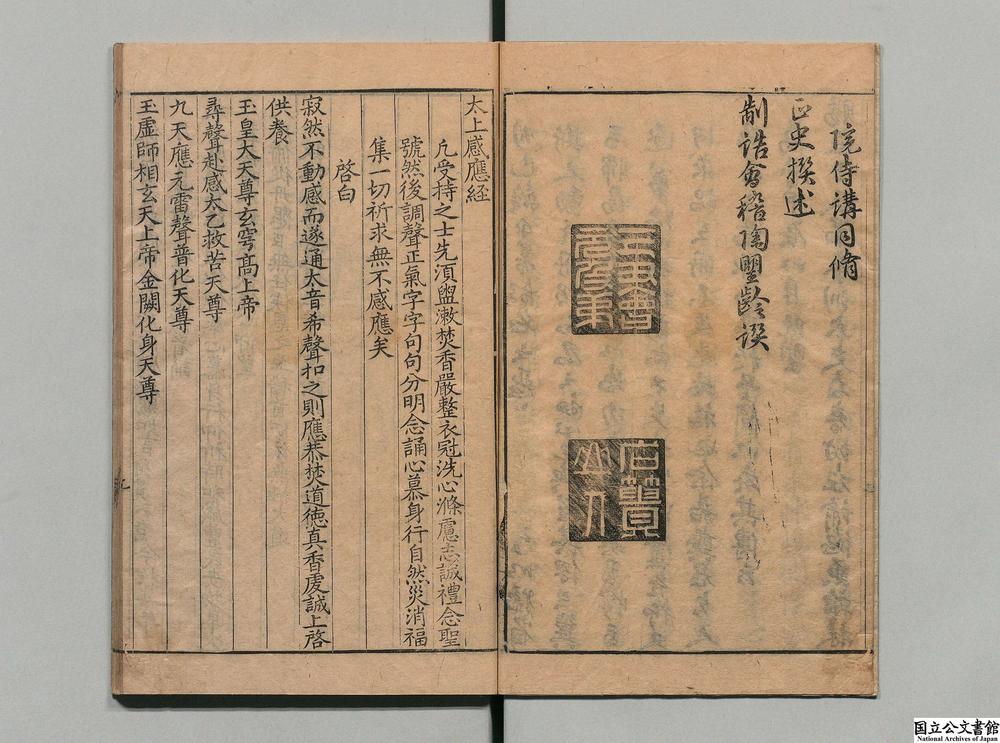 院侍講同脩
正史撰述
制誥會稽陶望齡譔
太上感應経
凢受持之士先湏盥漱焚香嚴整衣冠洗心滌慮志誠禮念聖
號然後調聲正氣字字句句分明念誦心慕身行自然災消福
集一切祈求無不感應矣
啓白
寂然不動感而遂通太音希聲扣之則應恭焚道德真香虔誠上啓
供養
玉皇大天尊玄穹高上帝
尋聲赴感太乙救苦天尊
九天應元雷聲普化天尊
玉虛師相玄天上帝金闕化身天尊
国立公文書館
National Archives of Japan